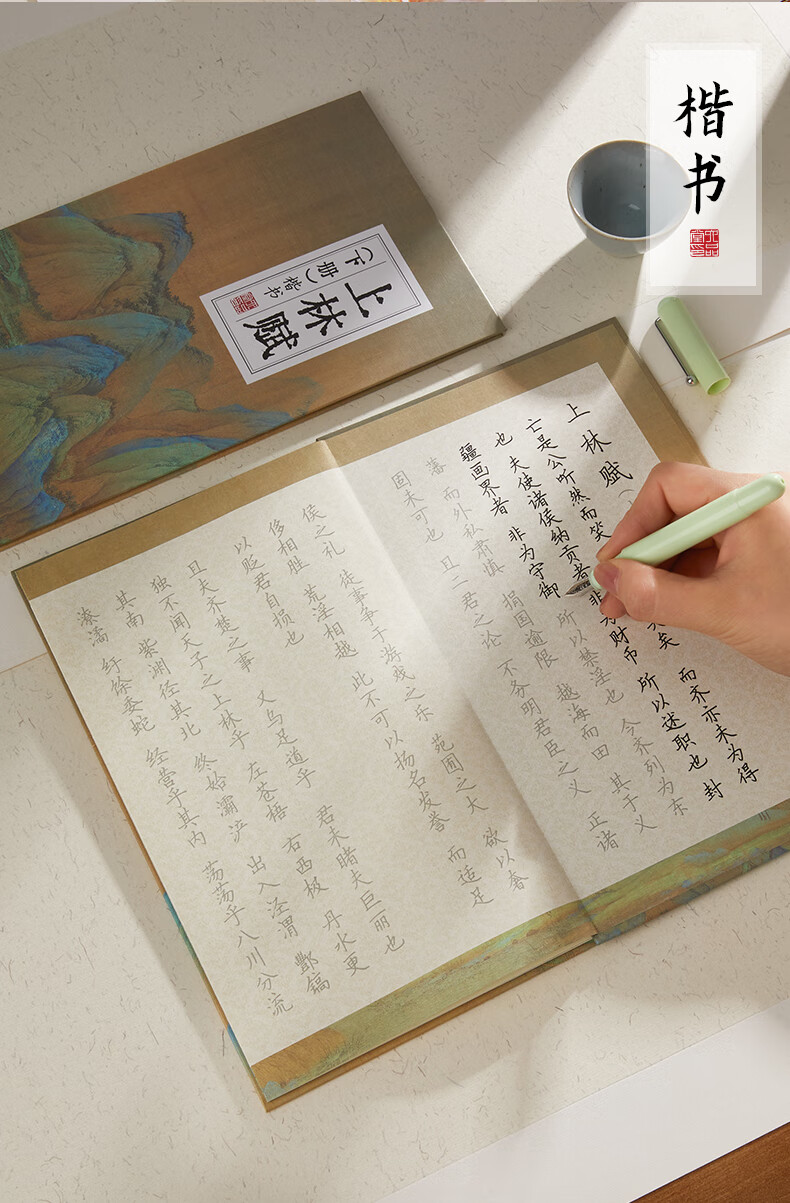 楷书
上林赋
（下册）楷书
上林赋（
亡是公听然而笑 矣 而齐亦未为得
也 夫使诸侯纳贡者 非为财币 所以述职也 封
疆画界者 非为守御 所以禁淫也 今齐列为东
藩 而外私肃慎 捐国逾限 越海而田 其于义
固未可也 且二君之论 不务明君臣之义 正诸
侯之礼 徒事争于游戏之乐 苑囿之大 欲以奢
侈相胜 荒淫相越 此不可以扬名发誉 而适足
以贬君自损也
且夫齐楚之事 又乌足道乎 君未睹夫巨丽也
独不闻天子之上林乎 左苍梧 右西极 丹水更
其南 紫渊径其北 终始灞浐 出入泾渭 酆镐
潦潏 纡馀委蛇 经营乎其内 荡荡乎八川分流